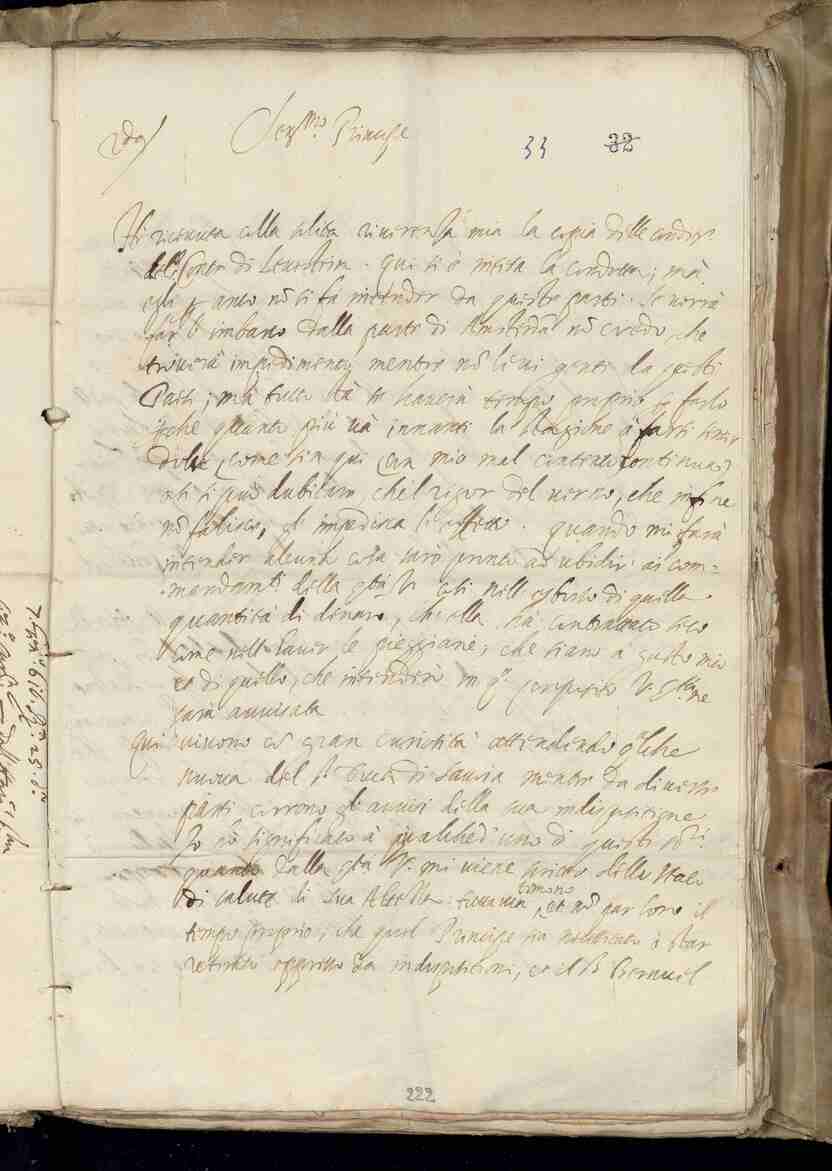 2da
Ser.mo Principe
33 32
Hò ricevuta colla solita riverenza mia la copia delle condi.ni
del Conte di Levestein. Qui si è intesa la condotta; mà
egli per anco nõ si fà intender da queste parti. Se vorrà
far l'imbarco dalla parte di Amsterdã nõ credo, che
troverà impedimento mentre nõ levi genti da questi
Paesi; mà tutto stà se haverà tempo proprio per farlo
che quanto più và innanti la stagione à farsi sentir
dolce, come fà qui con mio mal contento
si può dubitare, che'l rigor del verno, che infine
nõ falisca, gl'impedisca l'effetto. Quando mi farà
intender alcuna cosa sarò pronto ad ubidir ai com-
mandam.ti della Ser.tà V.ra così nell'esborso di quella
quantità di denaro, che ella hà contrattato seco
come nell'haver le pieggiarie, che siano à gusto mio
et di quello, che intenderò in q.to proposito V. Ser.tà ne
sarà avvisata
Qui vivono cõ gran curiosità attendendo q.lche
nuova del s.r Duca di Savoia mentre da diverse
parti corrono gli avvisi della sua indispositione
Io hò significato à qualched'uno di questi SS.ri
quanto dalla Ser.tà V. mi viene scritto dello stato
di salute di Sua Altezza: tuttavia temono, et nõ par loro il
tempo proprio, che quel Principe sia necessitato à star
retirato oppresso da indispositioni, et il S.r Bernvel
222